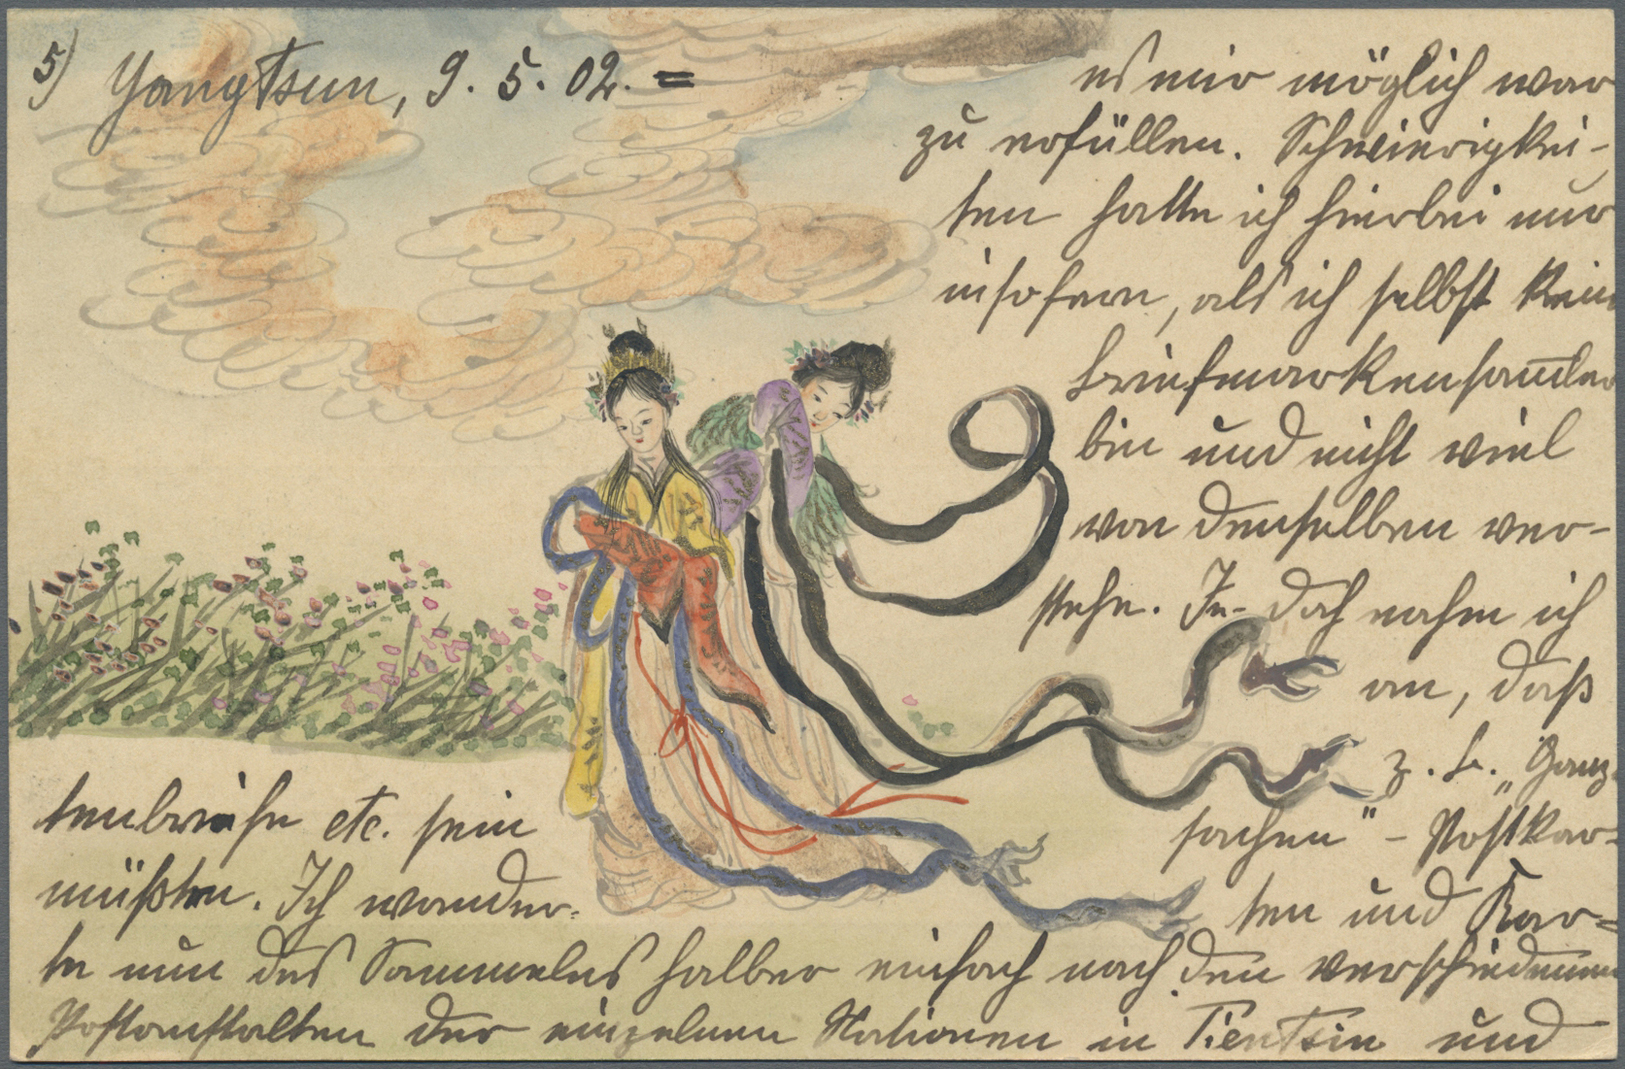 5) Yangtsun, 9. 5. 02. =
es mir möglich war
zu erfüllen. Schwierigkei-
ten hatte ich hierbei nur
insofern, als ich selbst kein
Briefmarkensam̅ler
bin und nicht viel
von denselben ver-
stehe. Je- doch nahm ich
an, daß
z. B. „Ganz-
sachen" - Postkar-
ten und Kar-
tenbriefe etc. sein
müßten. Ich wander-
te nun des Sammelns halber einfach nach den verschiedenen
Postanstalten der einzelnen Nationen in Tientsin und